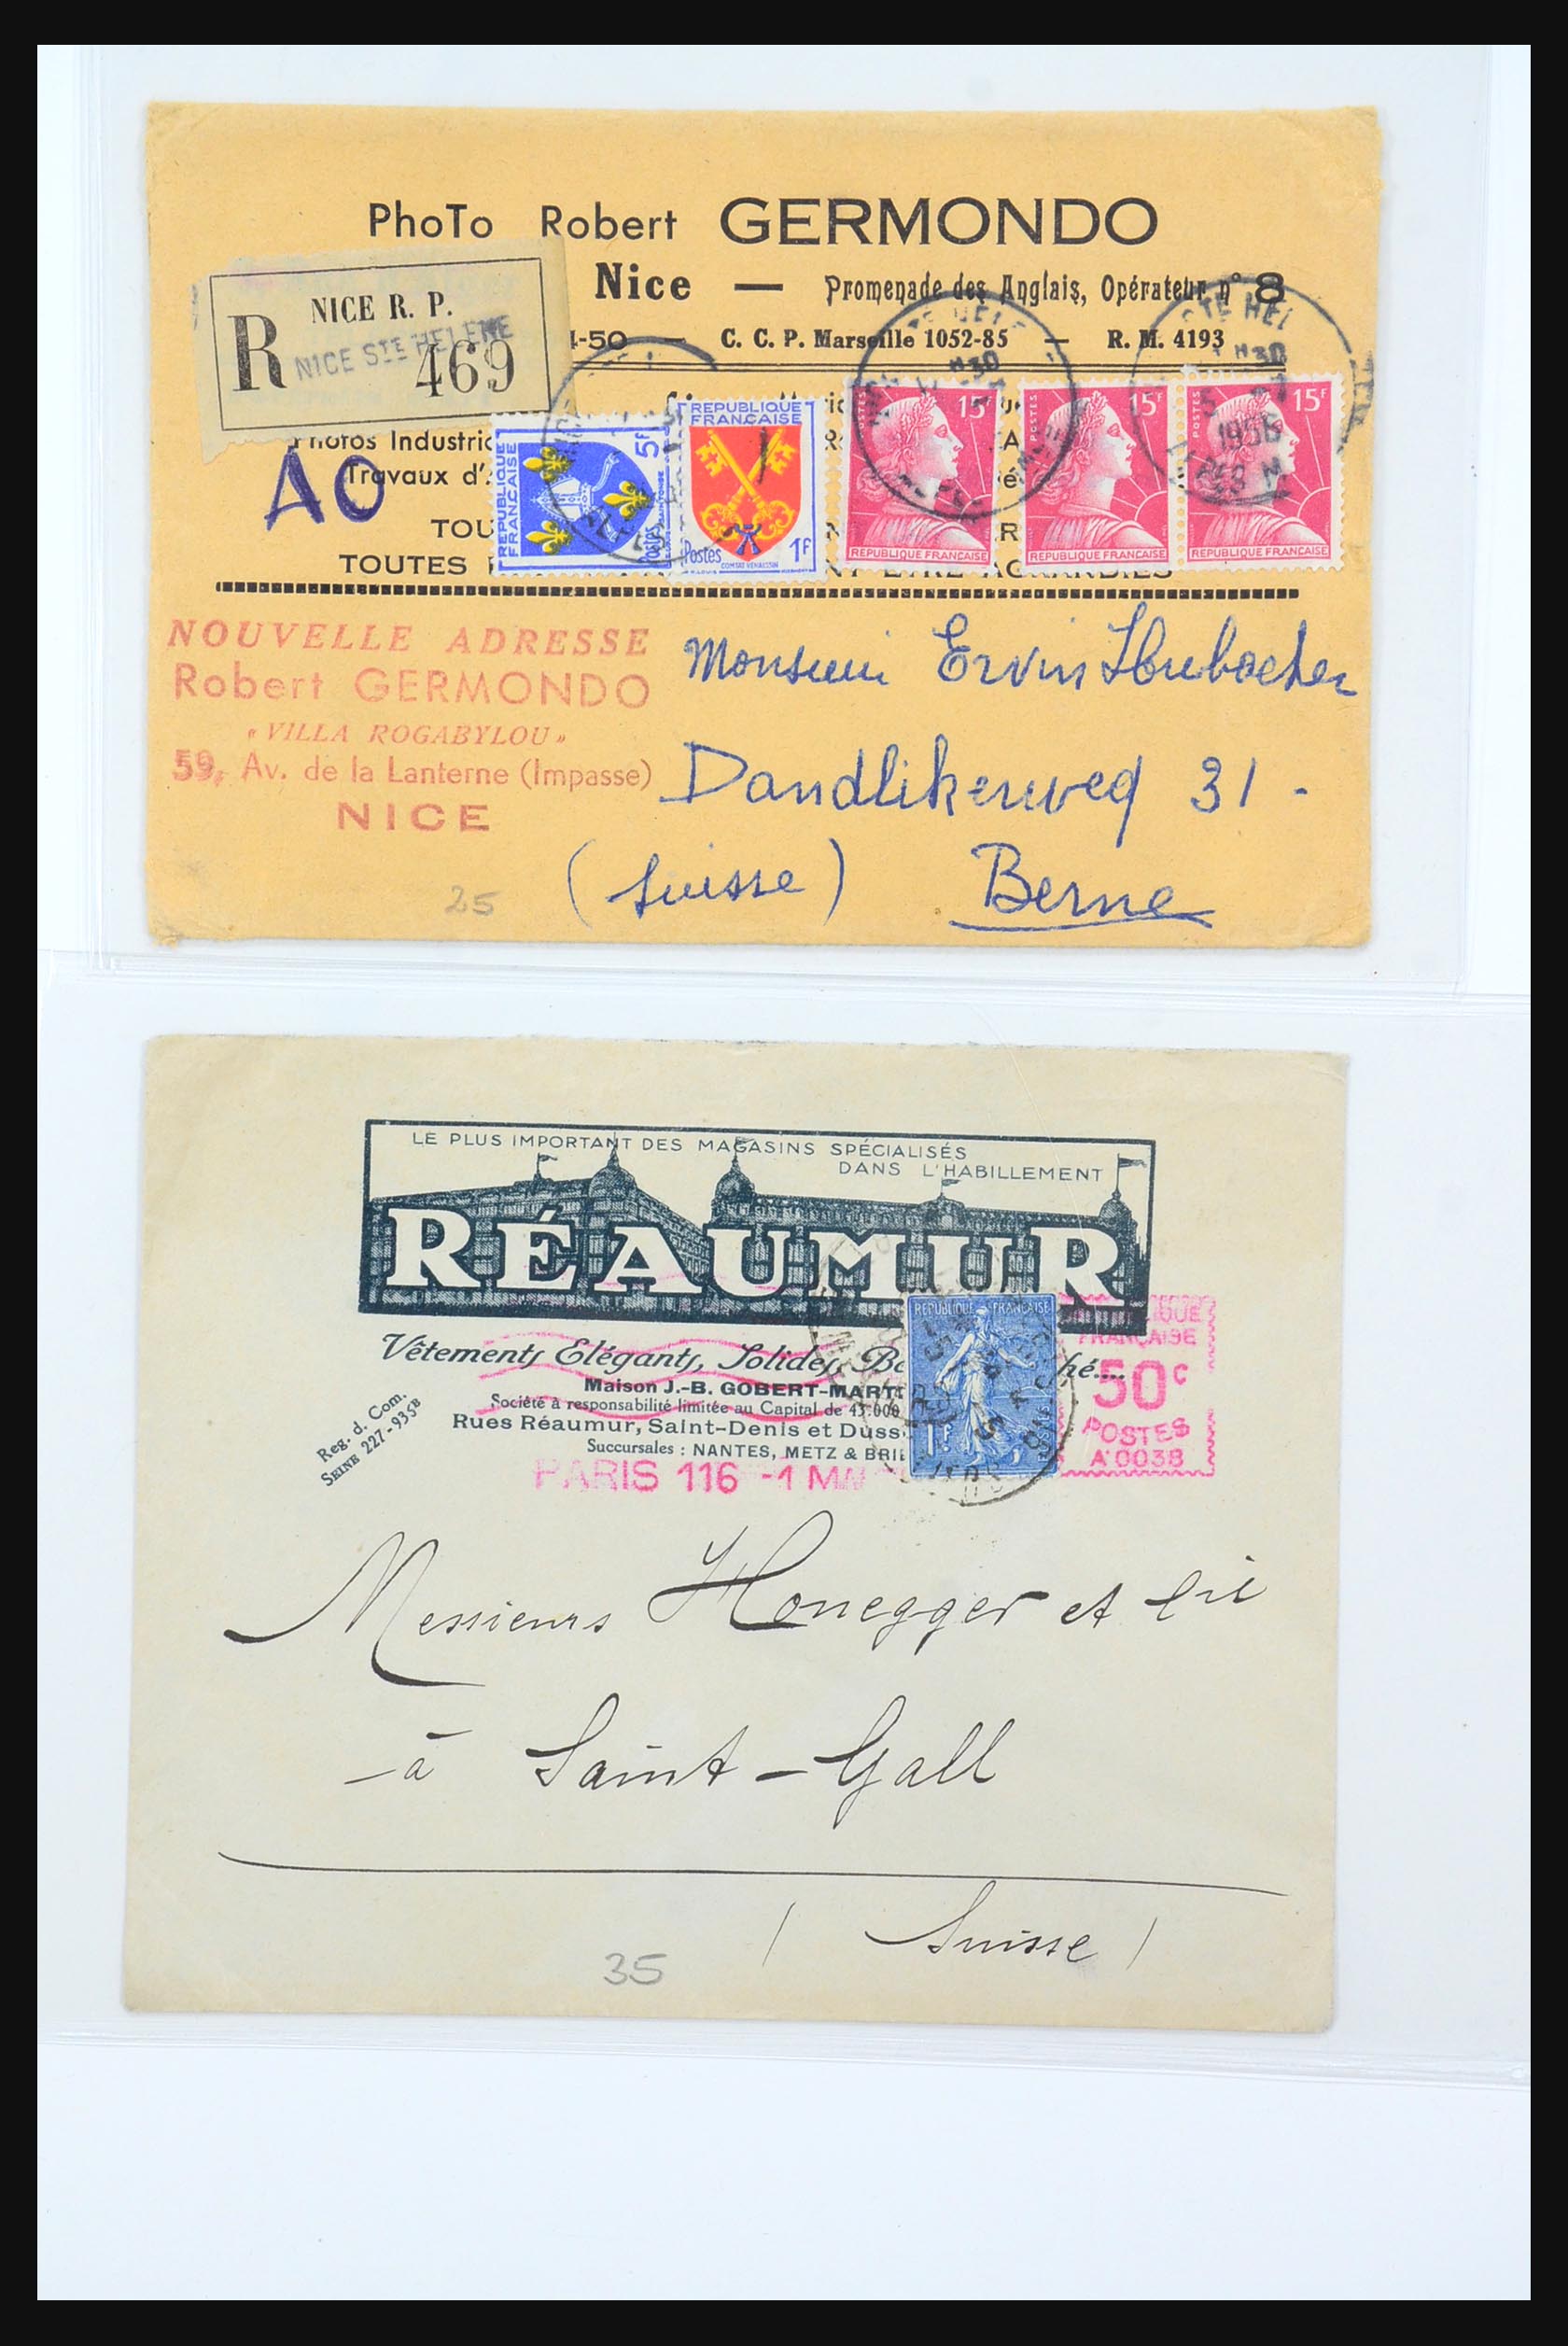 PhoTo Robert GERMONDO
Nice — Promenade des Anglais, Opérateur n° 8
4-50 — C. C. P. Marseille 1052-85 — R. M. 4193
NICE R. P.
R NICE STE HELENE
469
Photos Industrie
Travaux d'
AO
TOU
TOUTES
REPUBLIQUE FRANÇAISE
5F
Postes
REPUBLIQUE FRANÇAISE
Postes 1F
COMTAT VENAISSIN
POSTES 15F
REPUBLIQUE FRANÇAISE
POSTES 15F
REPUBLIQUE FRANÇAISE
POSTES 15F
REPUBLIQUE FRANÇAISE
STE HEL
1956
NOUVELLE ADRESSE
Robert GERMONDO
« VILLA ROGABYLOU »
59, Av. de la Lanterne (Impasse)
NICE
Monsieur Ervin Hubacher
Dandlikerweg 31 -
(Suisse) Berne
25
LE PLUS IMPORTANT DES MAGASINS SPÉCIALISÉS
DANS L'HABILLEMENT
RÉAUMUR
Vêtements Elégants, Solides, Bo
hé....
Maison J.-B. GOBERT-MART
Société à responsabilité limitée au Capital de 43.000
Rues Réaumur, Saint-Denis et Duss
Succursales : NANTES, METZ & BRI
Reg. d. Com.
SEINE 227-935B
PARIS 116 -1 MA
REPUBLIQUE FRANÇAISE
1F
FRANÇAISE
50c
POSTES
A 0038
Messieurs Honegger et Cie
à Saint-Gall
(Suisse)
35